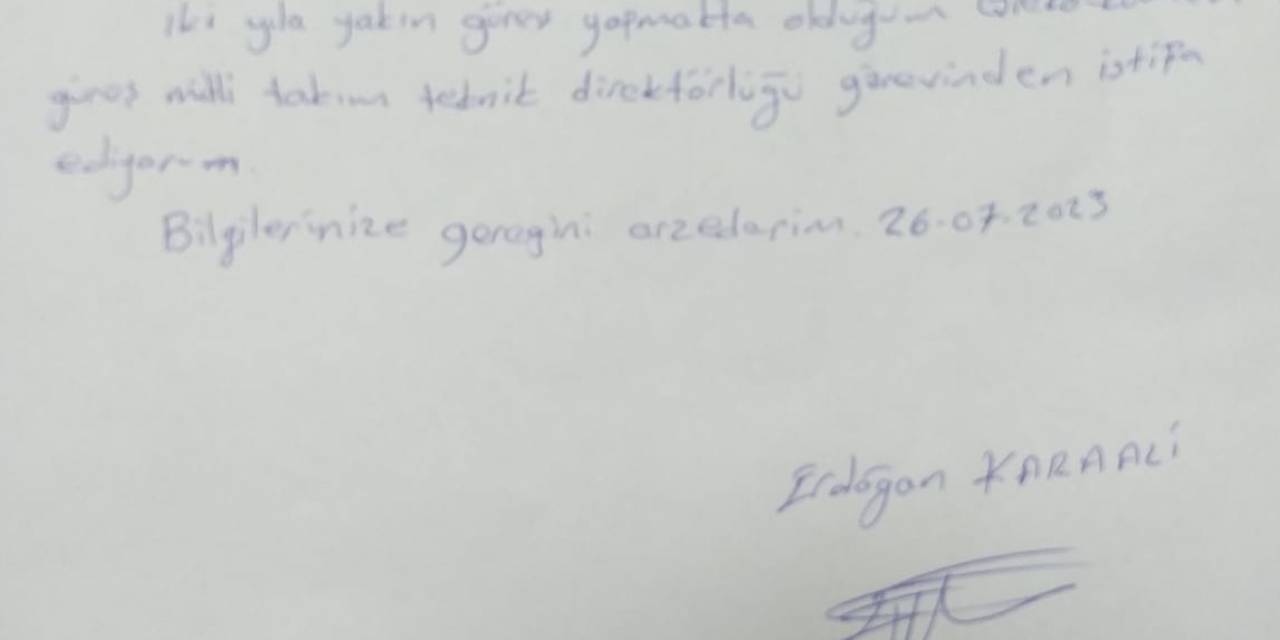 iki yıla yakın görev yapmakta olduğum
güreş milli takım teknik direktörlüğü görevinden istifa
ediyorum.
Bilgilerinize gereğini arzederim. 26.07.2023
Erdoğan KARAALİ